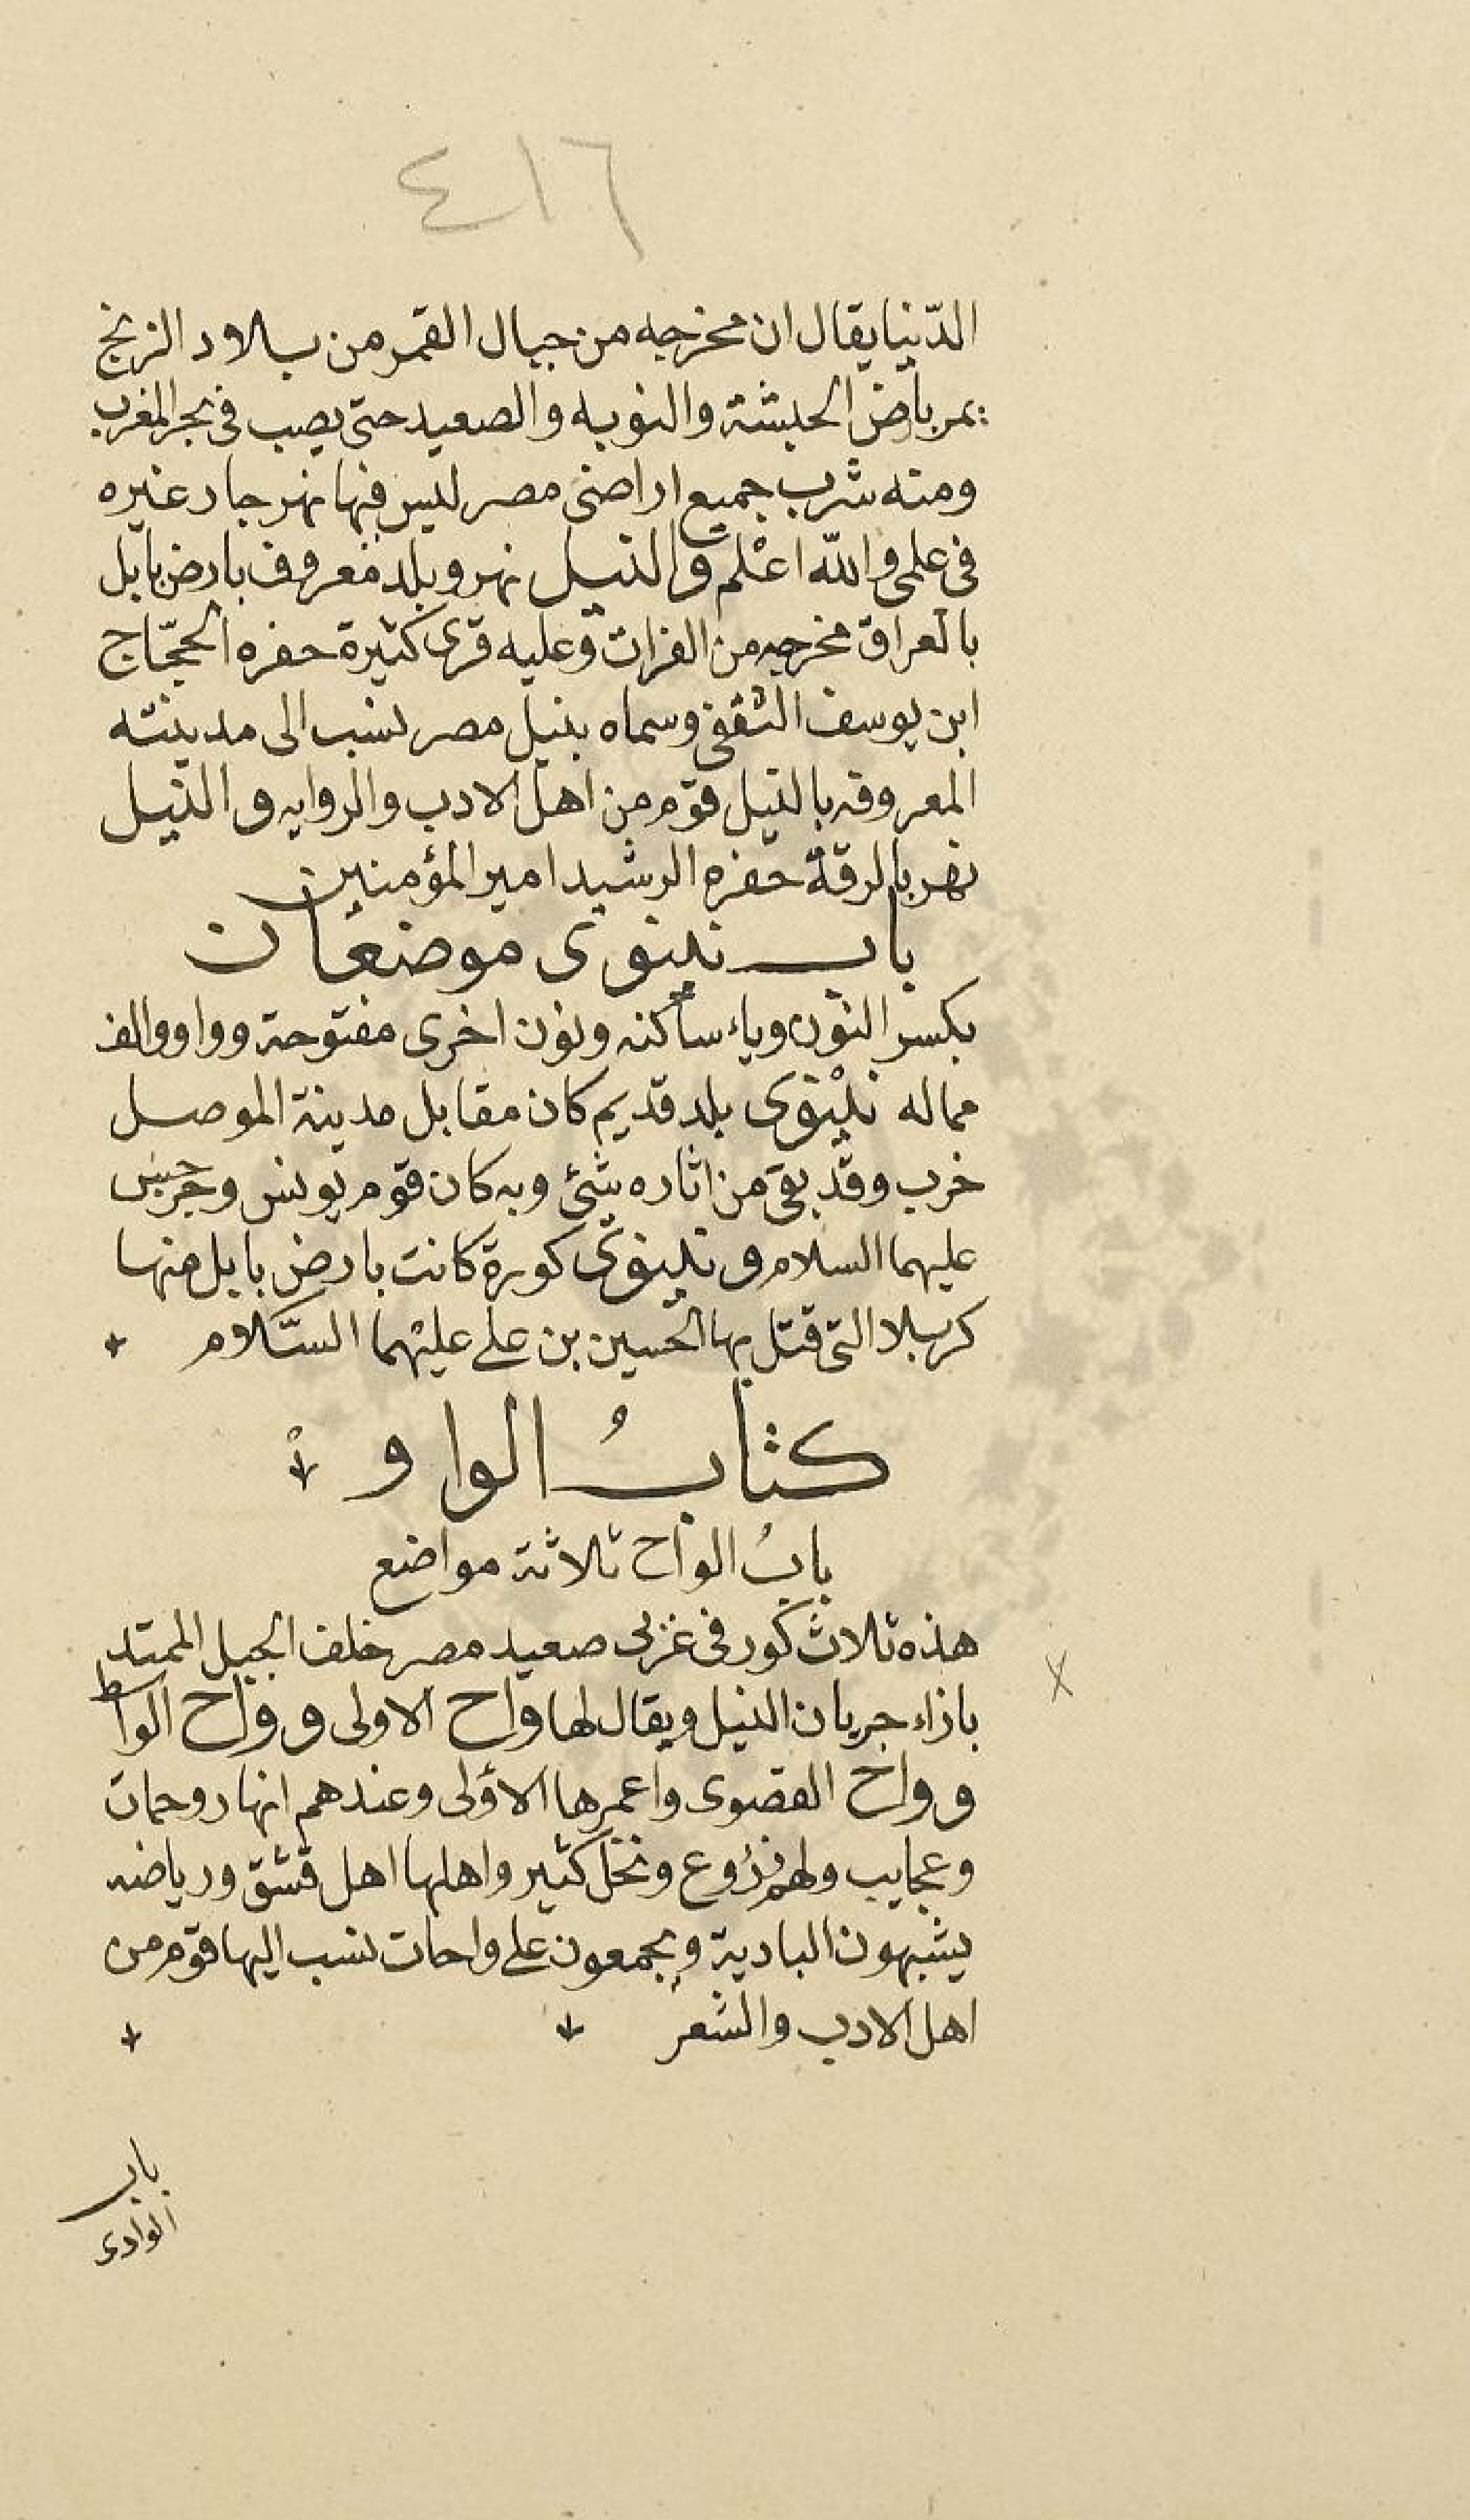 ٤١٦
الدّنيا يقال ان مخرجه من جبال القمر من بلاد الزنج
يمر بارض الحبشة والنوبه والصعيد حتى يصب فى بحر المغرب
ومنه شرب جميع اراضى مصر ليس فيها نهر جار غيره
فى علمى والله اعْلم والنيل نهر وبلد معروف بارض بابل
بالعراق مخرجه من الفرات وعليه قرى كثيرة حفره الحجّاج
ابن يوسف الثقفى وسماه بنيل مصر نسب الى مدينته
المعروفه بالنيل قوم من اهل الادب والروايه والنيل
نهر بالرقة حفره الرشيد امير المؤمنين
باب نينوى موضعان
بكسر النون وياء ساكنه ونون اخرى مفتوحة وواو والف
مماله نيْنوى بلد قديم كان مقابل مدينة الموصل
خرب وقد بقى من اثاره شئ وبه كان قوم يونس وجرجيس
عليهما السلام ونينوى كورة كانت بارض بابل منها
كربلا التى قتل بها الحسين بن على عليْهما السَّلام
كتابُ الواو
بابُ الواح ثلاثة مواضع
هذه ثلاث كور فى غربى صعيد مصر خلف الجبل الممتد
بازاء جريان النيل ويقال لها واح الاولى وواح الواسط
وواح القصوى واعمرها الاولى وعندهم انهار وحمات
وعجايب ولهم زروع ونخل كثير واهلها اهل قشق ورياضه
يشبهون البادية ويجمعون على واحات نسب اليها قوم من
اهل الادب والشعر
باب
الوادى